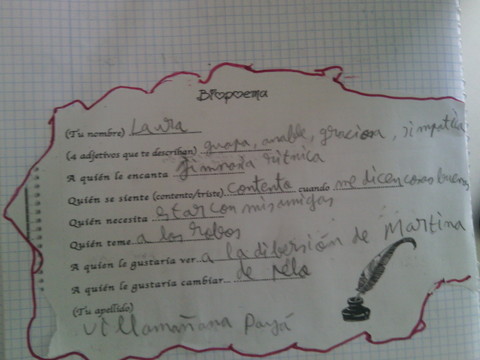 Biopoema
(Tu nombre) Laura
(4 adjetivos que te describan) guapa, amable, graciosa, simpatica
A quién le encanta jimnasia ritmica
Quién se siente (contento/triste) contenta cuando me dicen cosas buenas
Quién necesita estar con mis amigas
Quién teme a los robos
A quien le gustaría ver a la dibersión de Martina
A quién le gustaría cambiar... de pelo
(Tu apellido)
Villamañana Payá